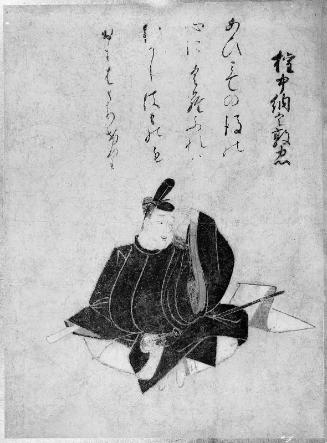 権中納言敦忠
あひみての後の
心にくらふれは
むかしはものを
おもはさりけり